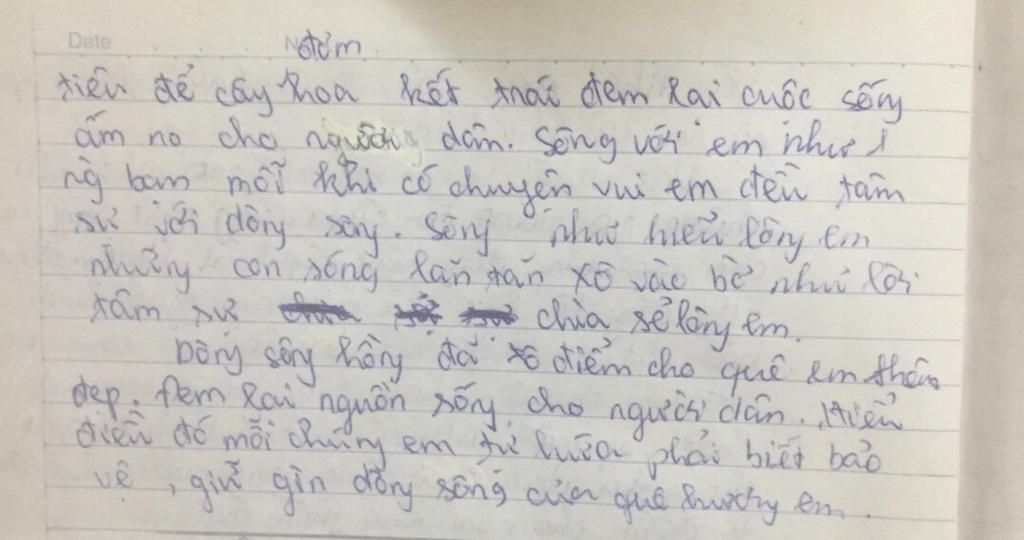 Date N
đơm
tiên để cây hoa kết trái đem lại cuộc sống
ấm no cho người dân. Sông với em như 1
ng bạn mỗi khi có chuyện vui em đều tâm
sự với dòng sông. Sông như hiểu lòng em
những con sóng lăn tăn xô vào bờ như lời
tâm sự chia sẻ lòng em.
Dòng sông hồng đã tô điểm cho quê em thêm
đẹp. Đem lại nguồn sống cho người dân. Hiểu
điều đó mỗi chúng em tự hứa phải biết bảo
vệ, giữ gìn dòng sông của quê hương em.